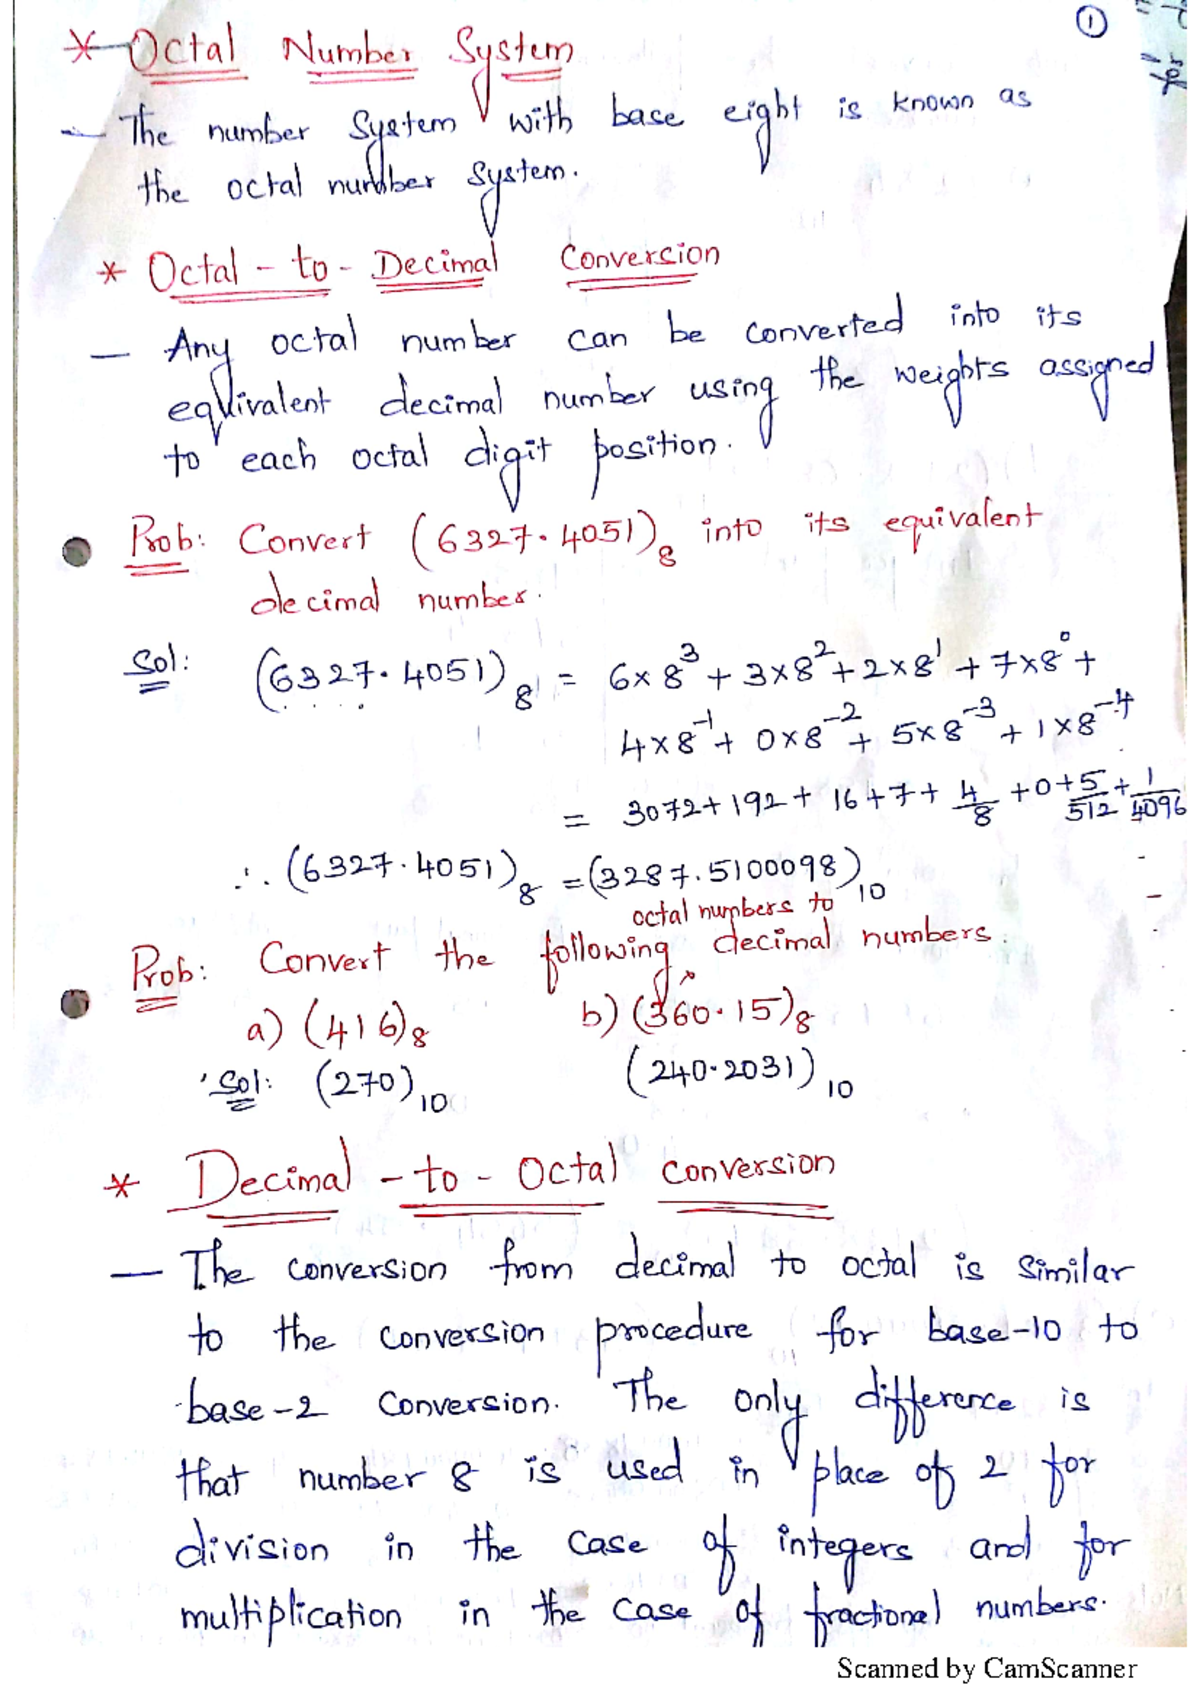 ①
* Octal Number System
- The number System with base eight is known as
the octal number system.
* Octal - to - Decimal Conversion
- Any octal number can be converted into its
equivalent decimal number using the weights assigned
to each octal digit position.
Prob: Convert (6327.4051)₈ into its equivalent
decimal number.
Sol: (6327.4051)₈ = 6×8³ + 3×8² + 2×8¹ + 7×8⁰ +
4×8⁻¹ + 0×8⁻² + 5×8⁻³ + 1×8⁻⁴
= 3072 + 192 + 16 + 7 + 4/8 + 0 + 5/512 + 1/4096
∴ (6327.4051)₈ = (3287.5100098)₁₀
octal numbers to
Prob: Convert the following decimal numbers.
a) (416)₈ b) (360.15)₈
Sol: (270)₁₀ (240.2031)₁₀
* Decimal - to - Octal conversion
- The conversion from decimal to octal is similar
to the conversion procedure for base-10 to
base-2 conversion. The only difference is
that number 8 is used in place of 2 for
division in the case of integers and for
multiplication in the case of fractional numbers.
Scanned by CamScanner